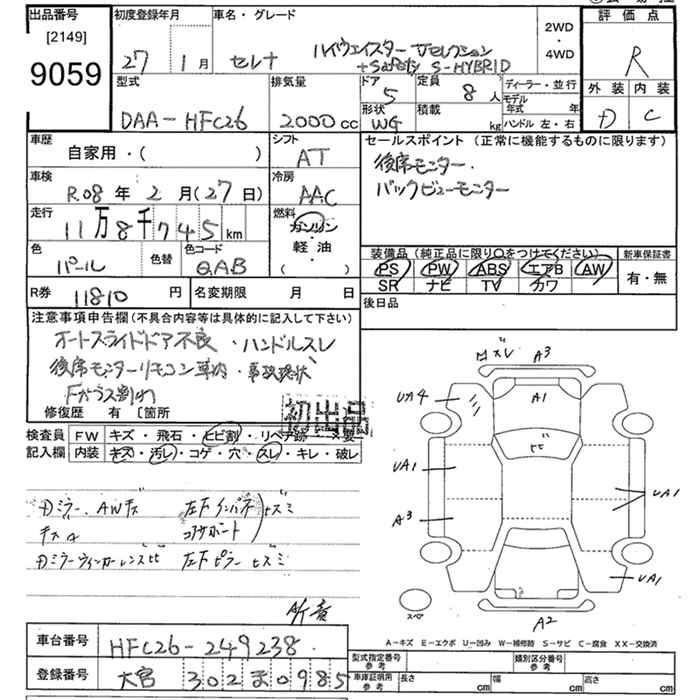 出品番号
[2149]
9059
初度登録年月
27 1月
車名・グレード
セレナ
ハイウェイスター Vセレクション
+Safety S-HYBRID
2WD
・
4WD
評価点
R
外装 内装
D C
型式
DAA-HFC26
排気量
2000cc
ドア
5
定員
8人
形状
WG
積載
kg
ディーラー・並行
モデル年式 年
ハンドル 左・右
車歴
自家用・( )
シフト
AT
車検
R.08年2月(27日)
冷房
AAC
走行
11万8千745km
燃料
ガソリン
・
軽・油
( )
色
パール
色替
色コード
QAB
R券 11810円
名変期限 月 日
セールスポイント (正常に機能するものに限ります)
後席モニター・
バックビューモニター
装備品 (純正品に限り○をつけてください)
PS PW ABS エアB AW
SR ナビ TV カワ
新車保証書
有・無
後日品
注意事項申告欄(不具合内容等は具体的に記入して下さい)
オートスライドドア不良・ハンドルスレ
後席モニターリモコン車内・事故現状
Fガラス割れ
修復歴 有 [箇所
初出品
検査員記入欄
FW キズ・飛石・ヒビ割・リペア跡・×要
内装 キズ・汚レ・コゲ・穴・スレ・キレ・破レ
Dミラー、AWキズ
左Fインパネ
コアサポート
ヒズミ
Dミラーウィンカーレンズヒビ
左Fピラーヒズミ
A3
UA4
A1
ヒビ
UA1
A3
UA1
UA1
A2
スペア
A-キズ E-エクボ U-凹み W-補修跡 S-サビ C-腐食 XX-交換済
車台番号
HFC26-249238
登録番号
大宮 302 ま 0985
型式指定番号
参考
類別区分番号
参考
車庫証明用
参考
長さ cm
幅 cm
高さ cm